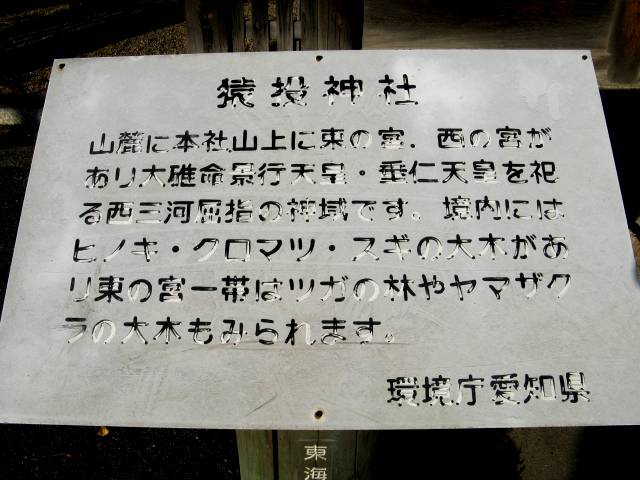 猿投神社
山麓に本社山上に東の宮．西の宮が
あり大碓命景行天皇・垂仁天皇を祀
る西三河屈指の神域です。境内には
ヒノキ・クロマツ・スギの大木があ
り東の宮一帯はツガの林やヤマザク
ラの大木もみられます。
環境庁愛知県
東海